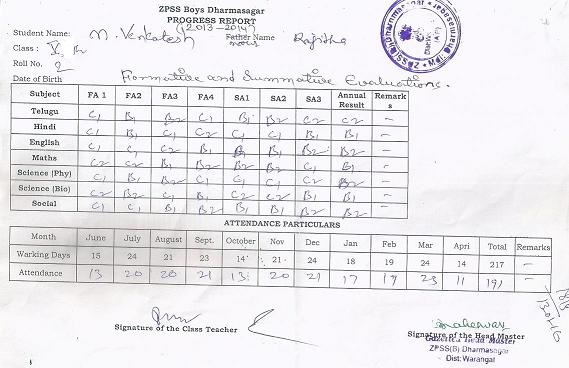 ZPSS Boys Dharmasagar
PROGRESS REPORT
(2013-2014)
Student Name: M. Venkatesh Father Name Rajitha
Class : V, B
Roll No. 2
Date of Birth
Formative and Summative Evaluations.
Subject FA 1 FA2 FA3 FA4 SA1 SA2 SA3 Annual Result Remarks
Telugu C1 B1 B2 C1 B1 B2 C2 C2 –
Hindi C1 B1 C1 C2 C1 C1 B1 B1 –
English C1 C1 C2 B1 B1 B1 B2 B2 –
Maths C2 C2 B1 B2 B2 B2 C1 B1 –
Science (Phy) C1 B1 B2 C1 C1 C1 C2 B2 –
Science (Bio) C2 B2 C1 B1 C2 C2 B1 B1 –
Social C1 C1 B1 B2 B1 B1 B2 B2 –
ATTENDANCE PARTICULARS
Month June July August Sept. October Nov Dec Jan Feb Mar Apri Total Remarks
Working Days 15 24 21 23 14 21 24 18 19 24 14 217 –
Attendance 13 20 20 21 13 20 21 17 19 23 11 191 –
Signature of the Class Teacher
Signature of the Head Master
Gazetted Head Master
ZPSS(B) Dharmasagar
Dist: Warangal